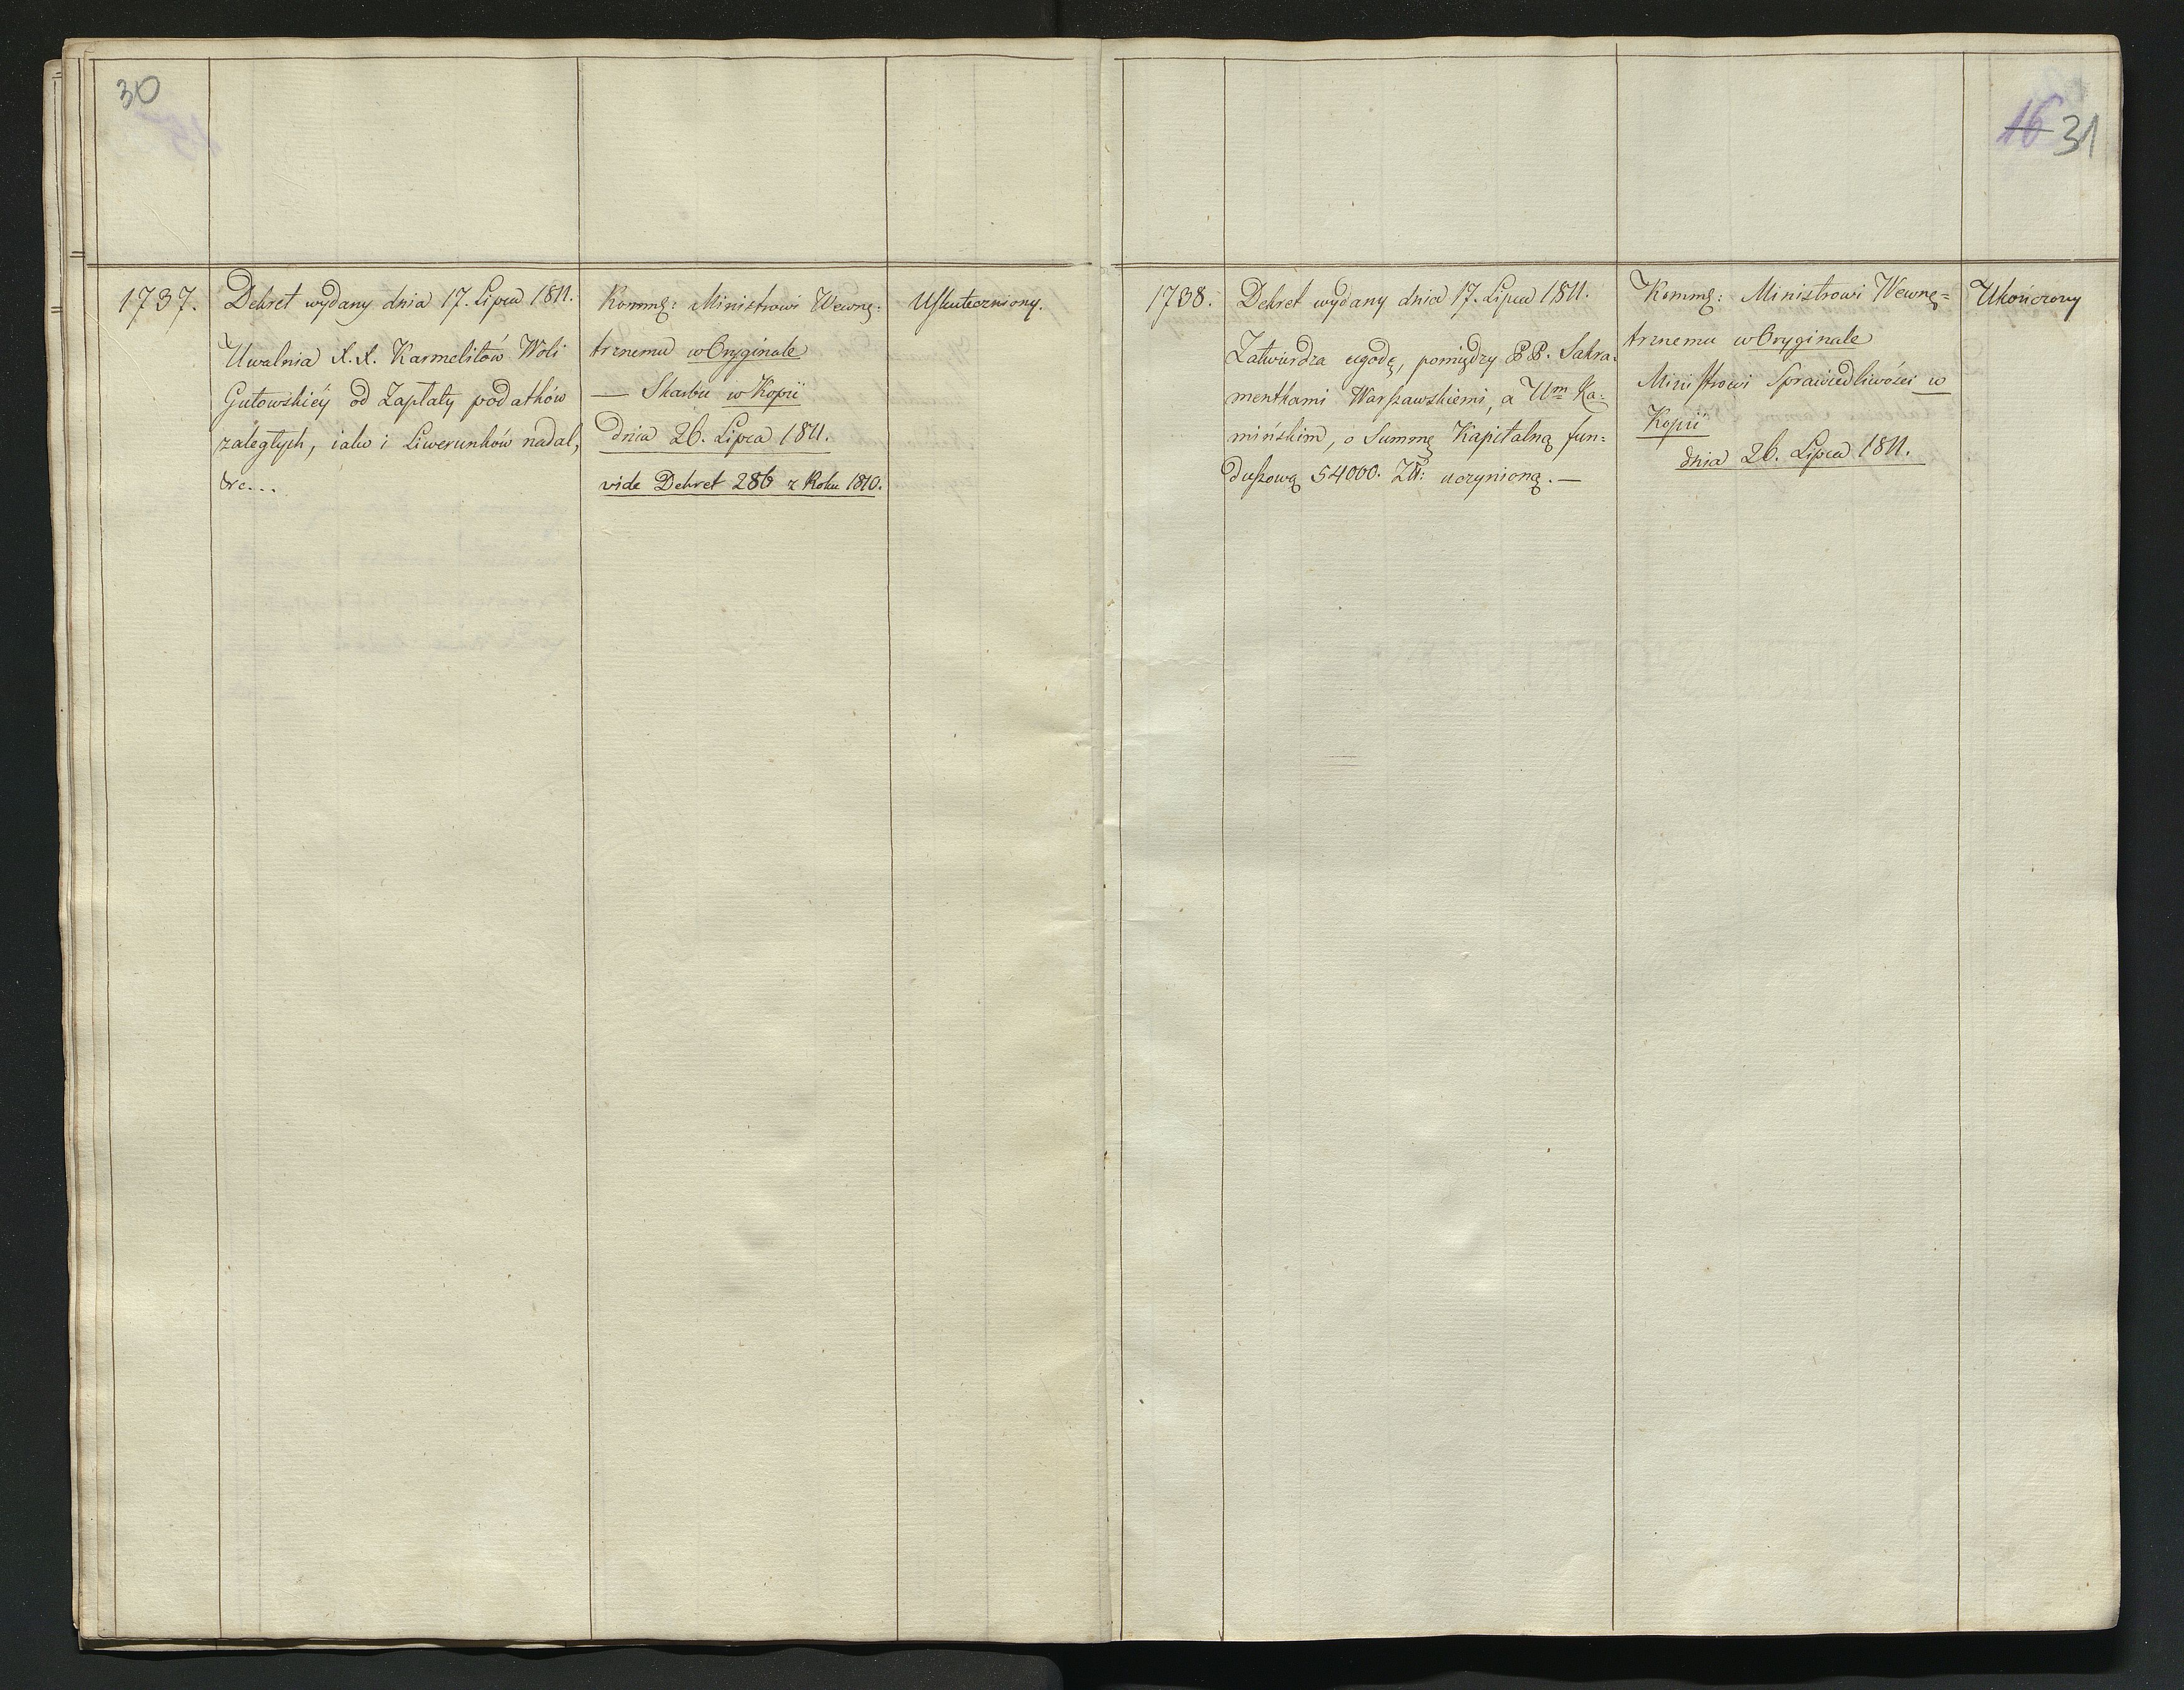 30
1737.
Dekret wydany dnia 17. Lipca 1811.
Uwalnia X.X. Karmelitów Woli
Gutowskiéy od Zapłaty podatków
zaległych, iako i Liwerunków nadal,
&c...
Kommę: Ministrowi Wewnę:
trznemu w Oryginale
— Skarbu w Kopii
dnia 26. Lipca 1811.
vide Dekret 286 z Roku 1810.
Uskuteczniony.
16 31
1738.
Dekret wydany dnia 17. Lipca 1811.
Zatwierdza ugodę, pomiędzy PP. Sakra:
mentkami Warszawskiemi, a Um Ka:
mińskim, o Summę Kapitalną fun:
duszową 54000. Zł: uczynioną. —
Kommę: Ministrowi Wewnę=
trznemu w Oryginale
Ministrowi Sprawiedliwości w
Kopii
dnia 26. Lipca 1811.
Ukończony